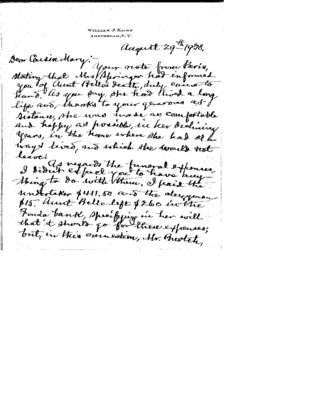 WILLIAM J. KLINE
AMSTERDAM, N.Y.
August 29th, 1938.
Dear Cousin Mary:-
Your note from Paris,
stating that Mrs Springer had informed
you of Aunt Belle's death, duly came to
hand. As you say, she had lived a long
life and, thanks to your generous as-
sistance, she was made as comfortable
and happy as possible, in her declining
years, in the home where she had al-
ways lived, and which she would not
leave.
As regards the funeral expenses,
I didn't expect you to have any
thing to do with them. I paid the
undertaker $411.50 and the clergyman
$15. Aunt Belle left $260 in the
Fonda bank, specifying in her will
that it should go for these expenses;
but, in this connection, Mr.